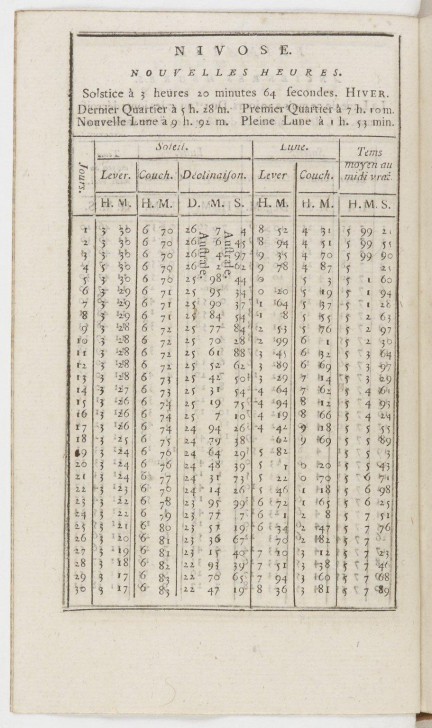 NIVOSE.
NOUVELLES HEURES.
Solstice à 3 heures 20 minutes 64 secondes. HIVER.
Dernier Quartier à 5 h. 28 m. Premier Quartier à 7 h. 10 m.
Nouvelle Lune à 9 h. 92 m. Pleine Lune à 1 h. 53 min.
Jours. Soleil. Lune. Tems moyen au midi vrai.
Lever. Couch. Déclinaison. Lever Couch.
H. M. H. M. D. M. S. H. M. H. M. H. M. S.
Australe. Australe.
1 3 30 6 70 26 7 4 8 52 4 31 5 99 21
2 3 30 6 70 26 6 45 8 94 4 51 5 99 55
3 3 30 6 70 26 4 97 9 35 4 70 5 99 90
4 5 30 6 70 26 2 62 9 78 4 87 5 21
5 3 30 6 70 25 98 44 0 5 3 5 1 60
6 3 29 6 71 25 95 34 0 20 5 19 5 1 94
7 3 29 6 71 25 90 37 1 64 5 37 5 1 28
8 3 29 6 71 25 84 54 1 8 5 55 5 2 63
9 3 28 6 72 25 77 84 2 53 5 76 5 2 97
10 3 28 6 72 25 70 28 2 99 6 1 5 2 30
11 3 28 6 72 25 61 88 3 45 6 32 5 3 64
12 3 28 6 72 25 52 62 3 89 6 69 5 3 97
13 3 28 6 73 25 42 50 3 29 7 14 5 3 29
14 3 27 6 73 25 31 54 4 64 7 62 5 4 61
15 3 26 6 74 25 19 75 4 94 8 12 5 4 93
16 3 26 6 74 25 7 10 4 19 8 66 5 4 24
17 3 26 6 74 24 94 26 4 42 9 18 5 5 55
18 3 25 6 75 24 79 38 62 9 69 5 5 89
19 3 24 6 76 24 64 29 5 82 5 5
20 3 24 6 76 24 48 39 5 1 0 20 5 5 43
21 3 24 6 77 24 31 73 5 22 0 70 5 6
22 3 23 6 78 24 14 26 5 46 1 18 5 6 98
23 3 22 6 78 23 95 99 6 72 1 65 5 6 25
24 3 22 6 23 77 7 6 1 2 8 5 7 51
25 3 21 6 80 23 57 19 6 34 2 47 5 7 76
26 3 20 6 81 23 36 67 70 2 82 5 7
27 3 19 6 81 23 15 40 7 10 3 12 5 7 23
28 3 18 6 82 22 93 39 7 51 3 38 5 7 46
29 3 17 6 83 22 70 65 7 94 3 60 5 7 68
30 3 17 6 83 22 47 19 8 36 3 81 5 7 89